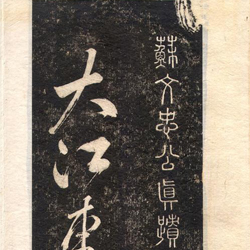 蘇文忠公眞蹟
大江東